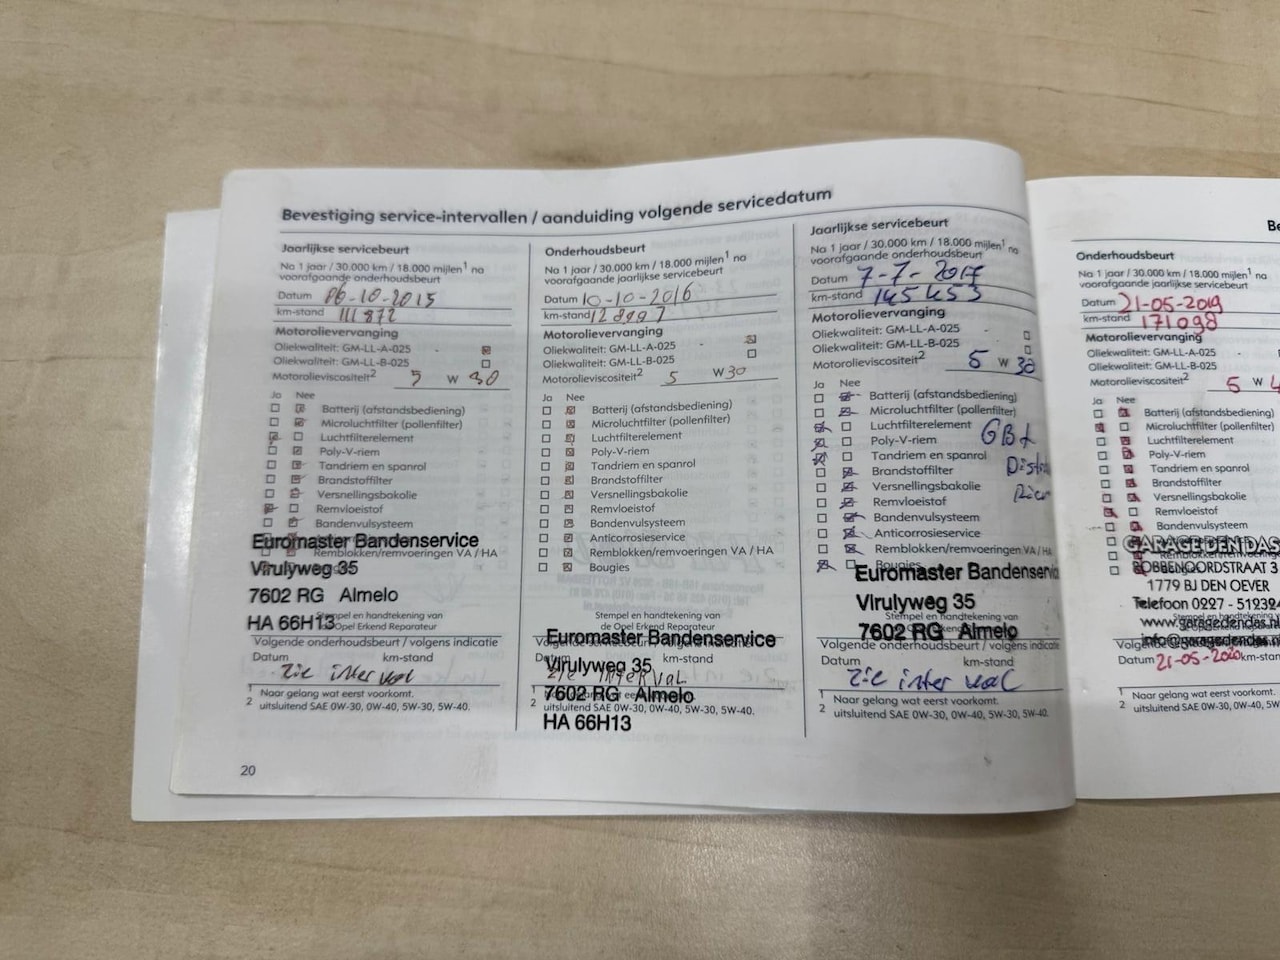 Bevestiging service-intervallen / aanduiding volgende servicedatum
Jaarlijkse servicebeurt
Na 1 jaar / 30.000 km / 18.000 mijlen¹ na
voorafgaande onderhoudsbeurt
Datum 06-10-2015
km-stand 111872
Motorolievervanging
Oliekwaliteit: GM-LL-A-025
Oliekwaliteit: GM-LL-B-025
Motorolieviscositeit² 5 W 30
Ja Nee
Batterij (afstandsbediening)
Microluchtfilter (pollenfilter)
Luchtfilterelement
Poly-V-riem
Tandriem en spanrol
Brandstoffilter
Versnellingsbakolie
Remvloeistof
Bandenvulsysteem
Euromaster Bandenservice
Remblokken/remvoeringen VA / HA
Virulyweg 35
7602 RG Almelo
HA 66H13
Stempel en handtekening van
de Opel Erkend Reparateur
Volgende onderhoudsbeurt / volgens indicatie
Datum km-stand
zie interval
¹ Naar gelang wat eerst voorkomt.
² uitsluitend SAE 0W-30, 0W-40, 5W-30, 5W-40.
20
Onderhoudsbeurt
Na 1 jaar / 30.000 km / 18.000 mijlen¹ na
voorafgaande jaarlijkse servicebeurt
Datum 10-10-2016
km-stand
Motorolievervanging
Oliekwaliteit: GM-LL-A-025
Oliekwaliteit: GM-LL-B-025
Motorolieviscositeit² 5 W 30
Ja Nee
Batterij (afstandsbediening)
Microluchtfilter (pollenfilter)
Luchtfilterelement
Poly-V-riem
Tandriem en spanrol
Brandstoffilter
Versnellingsbakolie
Remvloeistof
Bandenvulsysteem
Anticorrosieservice
Remblokken/remvoeringen VA / HA
Bougies
Stempel en handtekening van
de Opel Erkend Reparateur
Euromaster Bandenservice
Datum km-stand
Virulyweg 35
zie interval
7602 RG Almelo
HA 66H13
uitsluitend SAE 0W-30, 0W-40, 5W-30, 5W-40.
Jaarlijkse servicebeurt
Na 1 jaar / 30.000 km / 18.000 mijlen¹ na
voorafgaande onderhoudsbeurt
Datum 7-7-2017
km-stand 145453
Motorolievervanging
Oliekwaliteit: GM-LL-A-025
Oliekwaliteit: GM-LL-B-025
Motorolieviscositeit² 5 W 30
Ja Nee
Batterij (afstandsbediening)
Microluchtfilter (pollenfilter)
Luchtfilterelement
Poly-V-riem
Tandriem en spanrol
Brandstoffilter
Versnellingsbakolie
Remvloeistof
Bandenvulsysteem
Anticorrosieservice
Remblokken/remvoeringen VA / HA
Bougies
Euromaster Bandenservic
Virulyweg 35
Stempel en handtekening van
de Opel Erkend Reparateur
7602 RG Almelo
Volgende onderhoudsbeurt / volgens indicatie
Datum km-stand
zie interval
¹ Naar gelang wat eerst voorkomt.
² uitsluitend SAE 0W-30, 0W-40, 5W-30, 5W-40.
Be
Onderhoudsbeurt
Na 1 jaar / 30.000 km / 18.000 mijlen¹ na
voorafgaande jaarlijkse servicebeurt
Datum 21-05-2019
km-stand 171098
Motorolievervanging
Oliekwaliteit: GM-LL-A-025
Oliekwaliteit: GM-LL-B-025
Motorolieviscositeit² 5 W 4
Ja Nee
Batterij (afstandsbediening)
Microluchtfilter (pollenfilter)
Luchtfilterelement
Poly-V-riem
Tandriem en spanrol
Brandstoffilter
Versnellingsbakolie
Remvloeistof
Bandenvulsysteem
GARAGE DEN DAS
ROBBENOORDSTRAAT 3
1779 BJ DEN OEVER
Telefoon 0227 - 51929
www.garagedendas.nl
info@garagedendas.n
Datum 21-05-2020 km-stan
¹ Naar gelang wat eerst voorkomt.
² uitsluitend SAE 0W-30, 0W-40, 5W-30,